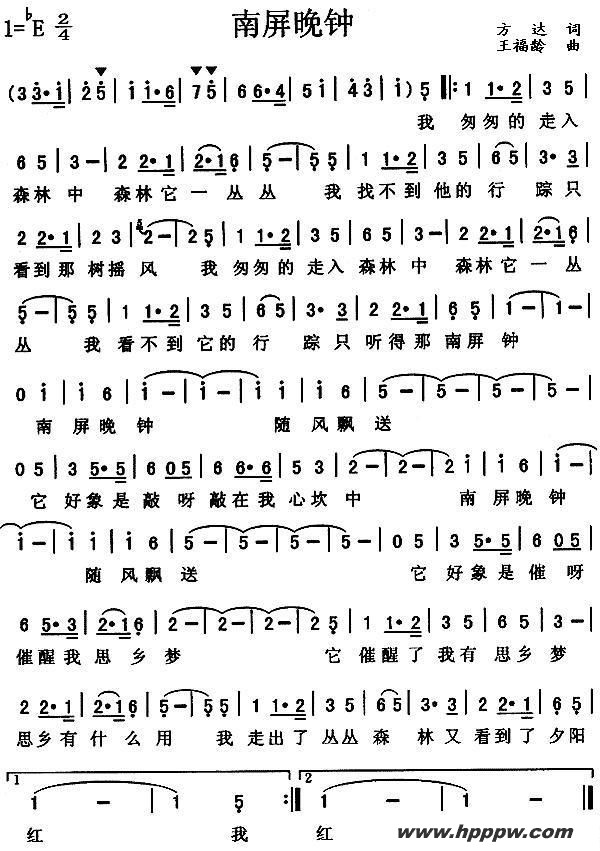 南屏晚钟
1=♭E 2/4
方达 词
王福龄 曲
(3 3·i | 2 5 | i i·6 | 7 5 | 6 6 6·4 | 5 i | 4·3 | i) 5 |: 1 1·2 | 3 5 |
我 匆匆的走入
6 5 | 3 – | 2 2·1 | 2·1 6 | 5 – | 5 5 | 1 1·2 | 3 5 | 6 5 | 3·3 |
森林中 森林它一丛丛 我找不到他的行 踪只
2 2·1 | 2 3 | 2 – | 2 5 | 1 1·2 | 3 5 | 6 5 | 3 – | 2 2·1 | 2·1 6 |
看到那树摇风 我匆匆的走入森林中 森林它一丛
5 – | 5 5 | 1 1·2 | 3 5 | 6 5 | 3· 3 | 2 2·1 | 6 5 | 1 – | 1 – |
丛 我看不到它的行 踪只听得那南屏钟
0 i | i 6 | i – | i – | i i | i 6 | 5 – | 5 – | 5 – | 5 – |
南屏晚钟 随风飘送
0 5 | 3 5·5 | 6 0 5 | 6 6·6 | 3 5 | 2 – | 2 – | 2 i | i 6 | i – |
它好象是敲呀敲在我心坎中 南屏晚钟
i – | i i | i 6 | 5 – | 5 – | 5 – | 5 – | 0 5 | 3 5·5 | 6 0 5 |
随风飘送 它好象是催呀
6 5·3 | 2·1 6 | 2 – | 2 – | 2 – | 2 5 | 1 1·2 | 3 5 | 6 5 | 3 – |
催醒我思乡梦 它催醒了我有思乡梦
2 2·1 | 2·1 6 | 5 – | 5 5 | 1 1·2 | 3 5 | 6 5 | 3· 3 | 2 2·1 | 6 5 |
思乡有什么用 我走出了丛丛森 林又看到了夕阳
1
1 – | 1 5 :| 2 1 – | 1 – ||
红 我 红
www.hpppw.com